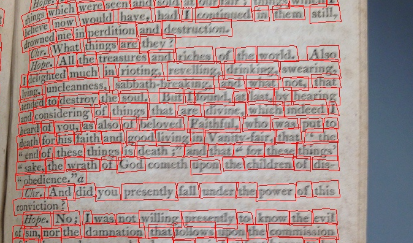 things which were seen and sold at our fair; things which I
believe now would have, had I continued in them still,
drowned me in perdition and destruction.
Chr. What things are they?
Hope. All the treasures and riches of the world. Also
I delighted much in rioting, revelling, drinking, swearing,
lying, uncleanness, sabbath-breaking, and what not, that
tended to destroy the soul. But I found, at last, by hearing
and considering of things that are divine, which indeed I
heard of you, as also of beloved Faithful, who was put to
death for his faith and good living in Vanity-fair, that "the
"end of these things is death;" and that "for these things'
"sake, the wrath of God cometh upon the children of dis-
"obedience."a
Chr. And did you presently fall under the power of this
conviction?
Hope. No; I was not willing presently to know the evil
of sin, nor the damnation that follows upon the commission